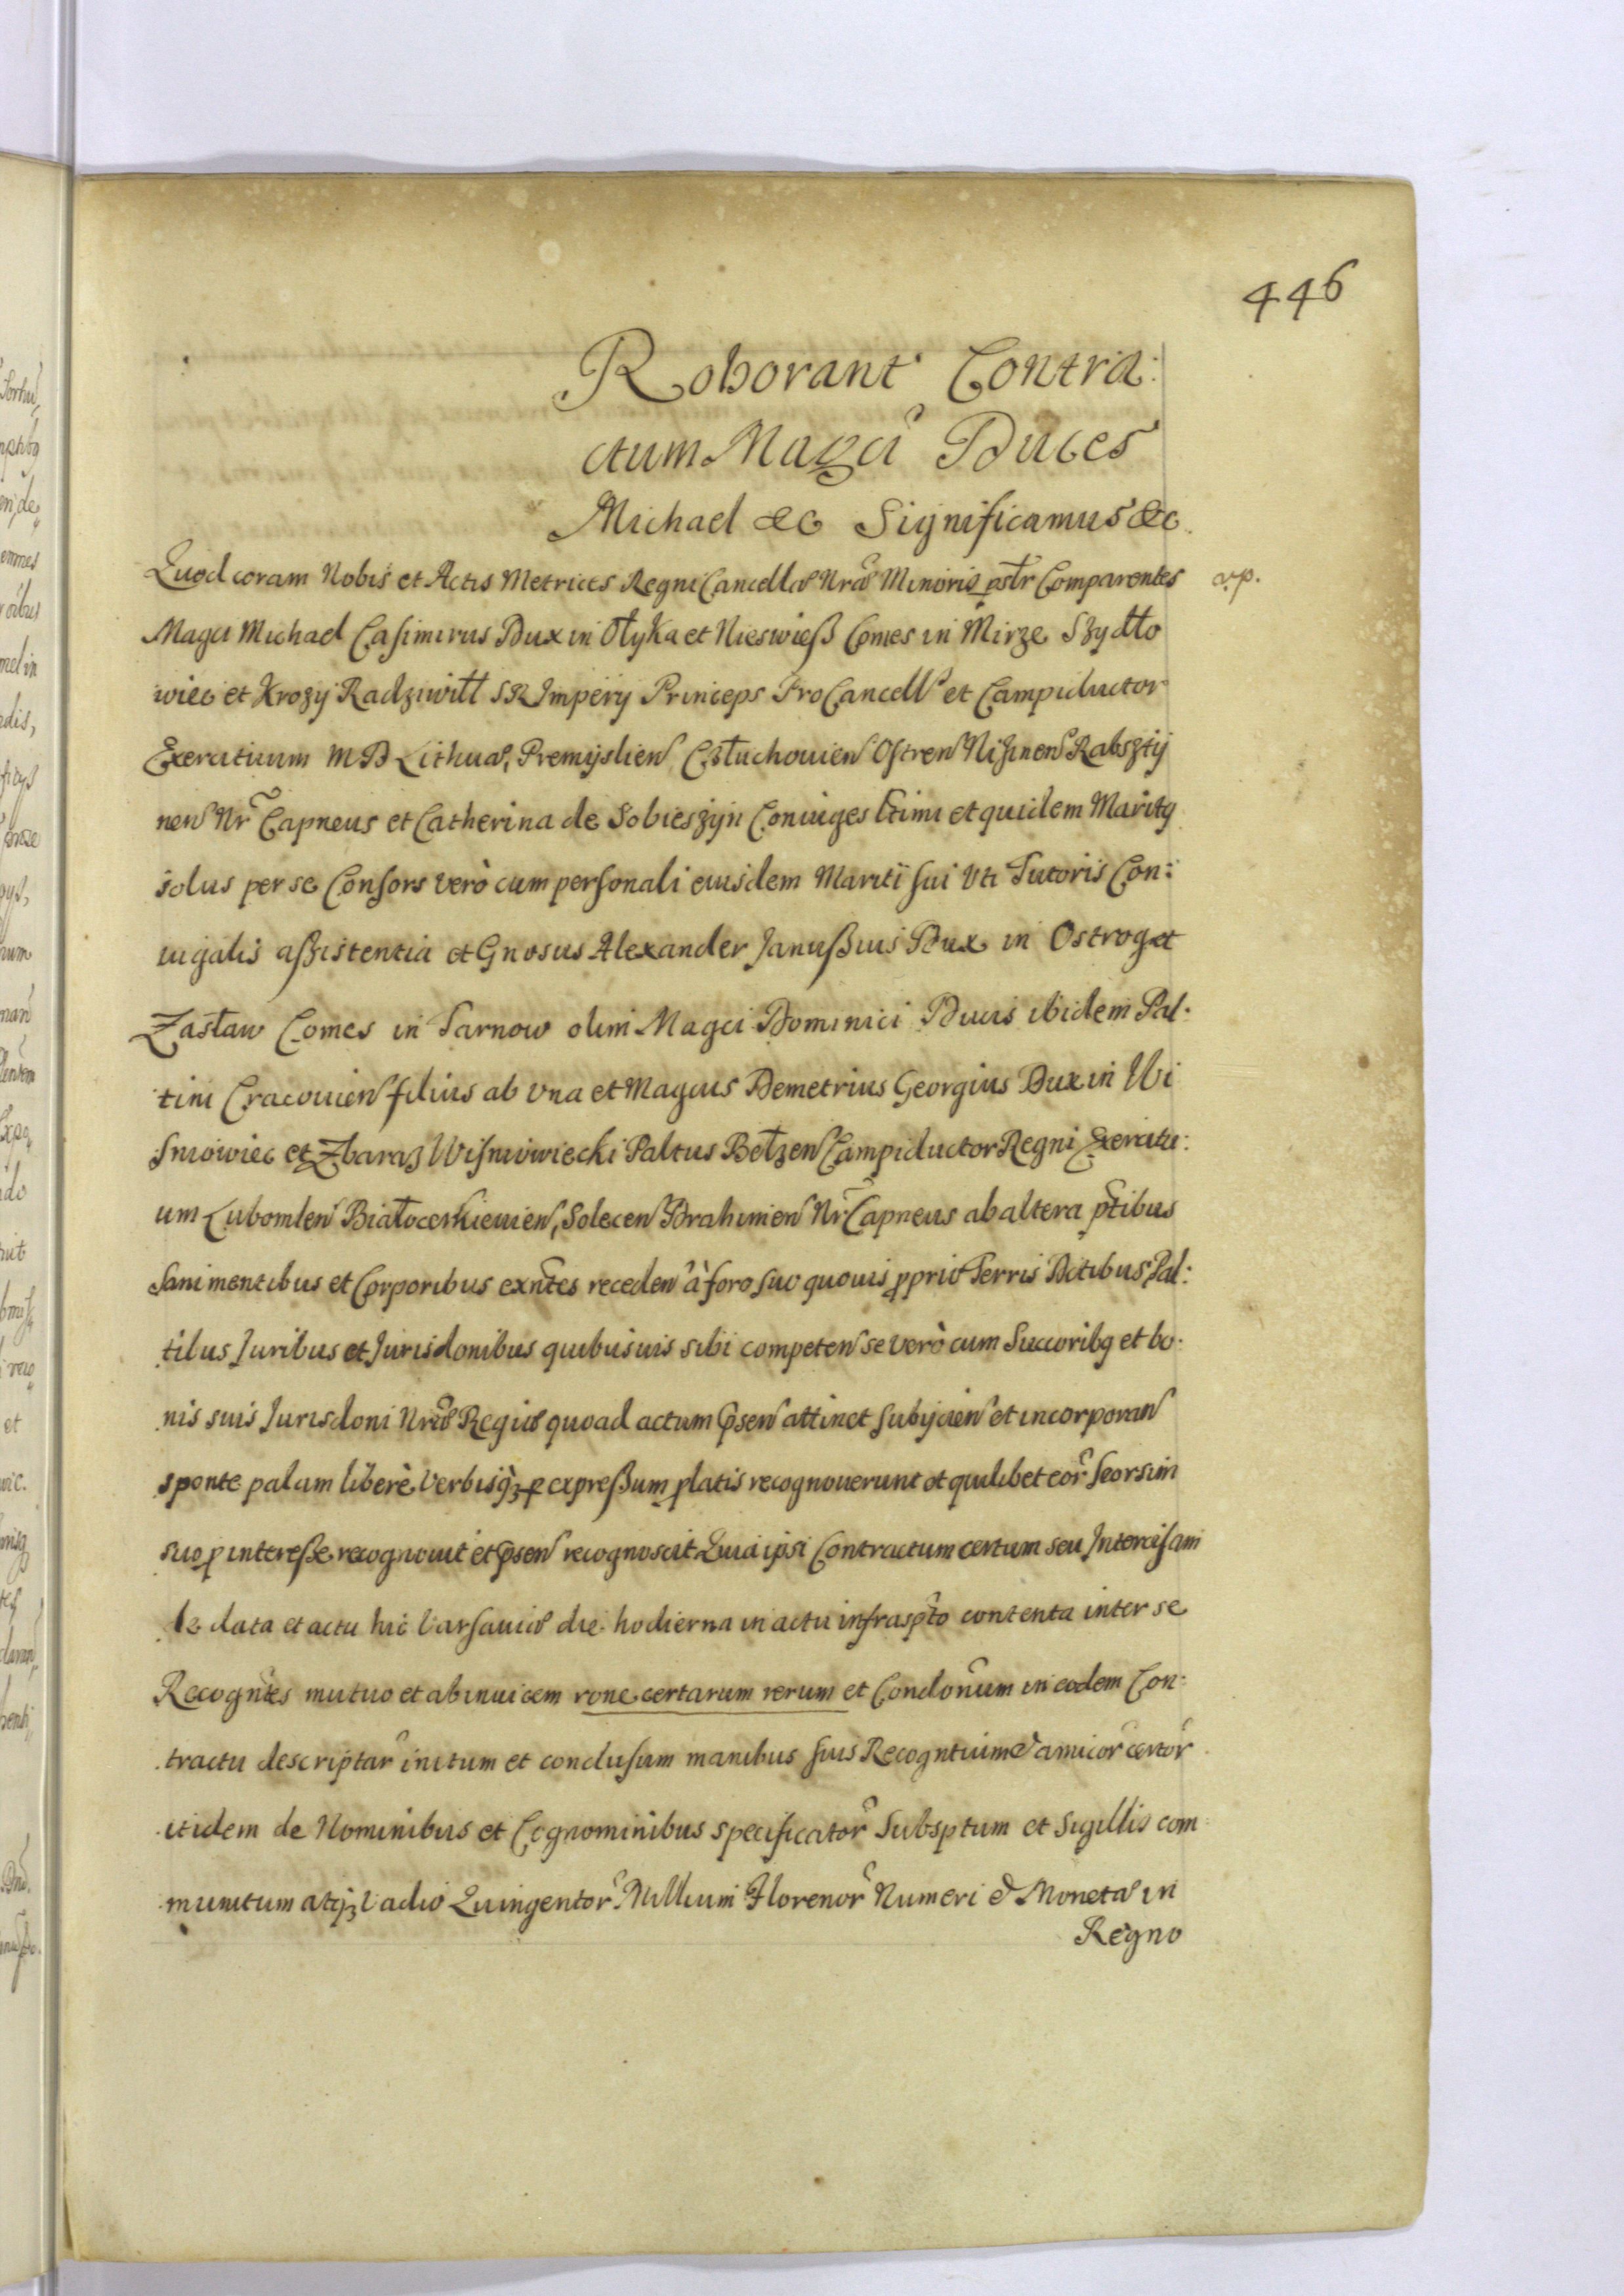 446
Roborant Contra:
ctum Magci Duces
Michael &c Significamus &c
Quod coram Nobis et Actis Metrices Regni Cancellae Nrae Minoris pstr Comparentes
Magci Michael Casimirus Dux in Ołyka et Nieswieß Comes in Mirze Szydło
wiec et Krozy Radziwiłł SR Impery Princeps ProCancells et Campiductor
Exercituum M D Lithuae, Premyslien Człuchouien Ostren Nizinen Rabsztÿ
nen Nr Capneus et Catherina de Sobieszyn Coniuges ltimi et quidem Marity
solus per se Consors verò cum personali eiusdem Maritï sui Uti Tutoris Con:
iugalis aßistentia et Gnosus Alexander Janußius Dux in Ostrog et
Zasław Comes in Tarnow olim Magci Dominici Ducis ibidem Pal:
tini Cracouien filius ab una et Magcus Demetrius Georgius Dux in Wi
sniowiec et Zbaraz Wisniowiecki Paltus Bełzen Campiductor Regni Exercitu:
um Lubomlen Białocerkieuien, Solecen Brahinien Nr Capneus ab altera ptibus
Sani mentibus et Corporibus exntes receden à foro suo quouis pprio Terris Dctibus Pal:
tibus Juribus et Jurisdonibus quibusuis sibi competen se verò cum Succoribq et bo:
nis suis Jurisdoni Nrae Regiae quoad actum psen attinet subijcien et incorporan
sponte palam liberè verbisq3 p expreßum platis recognouerunt et quilibet eor seorsim
suo p intereße recognouit et psen recognoscit Quia ipsi Contractum certum seu Intercisam
de data et actu hic Varsauiae die hodierna in actu infraspto contenta inter se
Recogntes mutuo et ab inuicem rone certarum rerum et Condonum in eodem Con:
tractu descriptar initum et conclusum manibus suis Recogntium & amicor certor
itidem de Nominibus et Cognominibus specificator Subsptum et Sigillis com
munitum atq3 Vadio Quingentor Millium Florenor Numeri & Monetae in
Regno